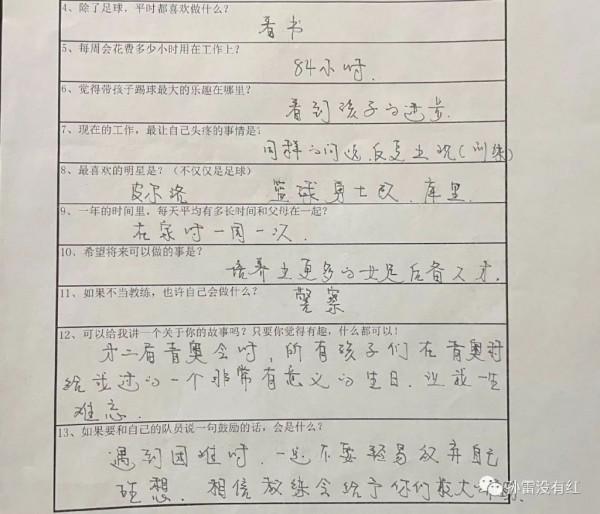 4、除了足球，平时都喜欢做什么？
看书
5、每周会花费多少小时用在工作上？
84小时.
6、觉得带孩子踢球最大的乐趣在哪里？
看到孩子的进步.
7、现在的工作，最让自己头疼的事情是：
同样的问题.反复出现(训练)
8、最喜欢的明星是？（不仅仅是足球）
皮尔洛 篮球勇士队.库里.
9、一年的时间里，每天平均有多长时间和父母在一起？
在家时一周一次.
10、希望将来可以做的事是？
培养出更多的女足后备人才.
11、如果不当教练，也许自己会做什么？
警察
12、可以给我讲一个关于你的故事吗？只要你觉得有趣，什么都可以！
才二届青奥会时，所有孩子们在青奥村
给我过的一个非常有意义的生日.让我一生
难忘.
13、如果要和自己的队员说一句鼓励的话，会是什么？
遇到困难时.一定不要轻易放弃自己
理想. 相信教练会给予你们最大
孙雷没有红